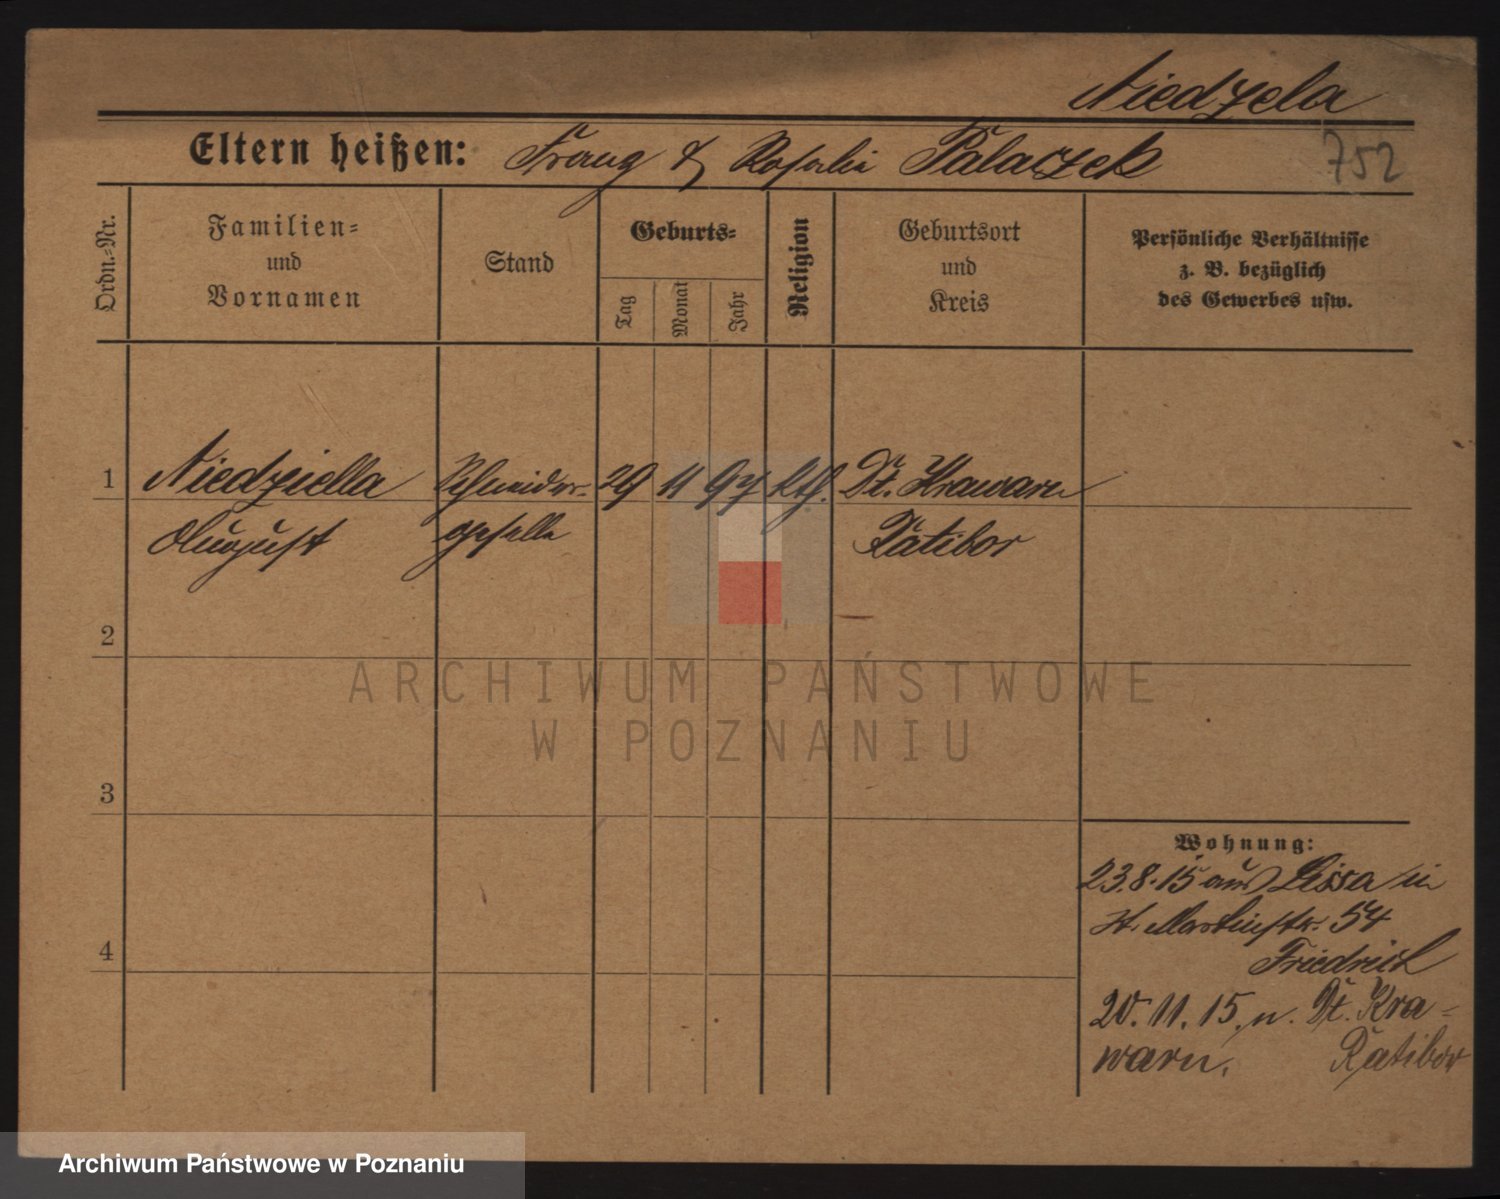 Niedzela
Eltern heißen: Franz & Rosalie Palaczek
752
Ordn.-Nr.
Familien-
und
Vornamen
Stand
Geburts-
Tag
Monat
Jahr
Religion
Geburtsort
und
Kreis
Persönliche Verhältnisse
z. B. bezüglich
des Gewerbes usw.
1 Niedziella Schneider- 29 11 97 kth. Dt. Krawarn
August geselle Ratibor
2
3
4
Wohnung:
23.8.15 aus Lissa in
St. Martinstr. 54
Friedrich
20.11.15. n. Dt. Kra-
warn. Ratibor
ARCHIWUM PAŃSTWOWE
W POZNANIU
Archiwum Państwowe w Poznaniu